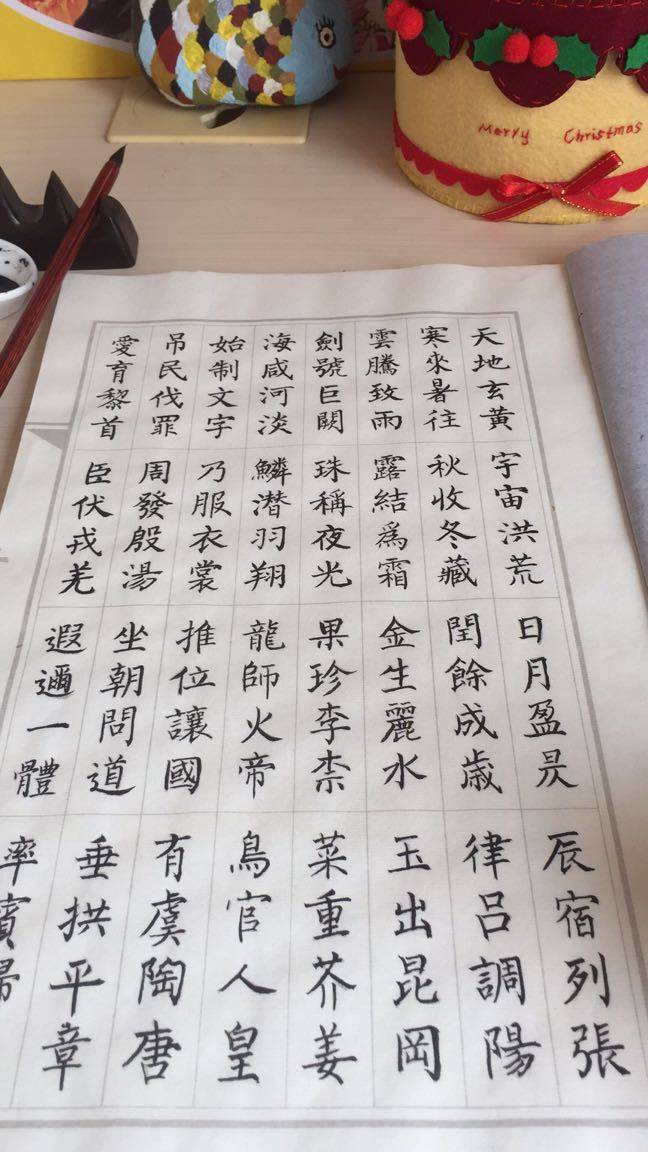 Merry Christmas
天地玄黃宇宙洪荒日月盈昃辰宿列張
寒來暑往秋收冬藏閏餘成歳律呂調陽
雲騰致雨露結爲霜金生麗水玉出昆岡
劍號巨闕珠稱夜光果珍李柰菜重芥姜
海咸河淡鱗潜羽翔龍師火帝鳥官人皇
始制文字乃服衣裳推位讓國有虞陶唐
吊民伐罪周發殷湯坐朝問道垂拱平章
愛育黎首臣伏戎羌遐邇一體率